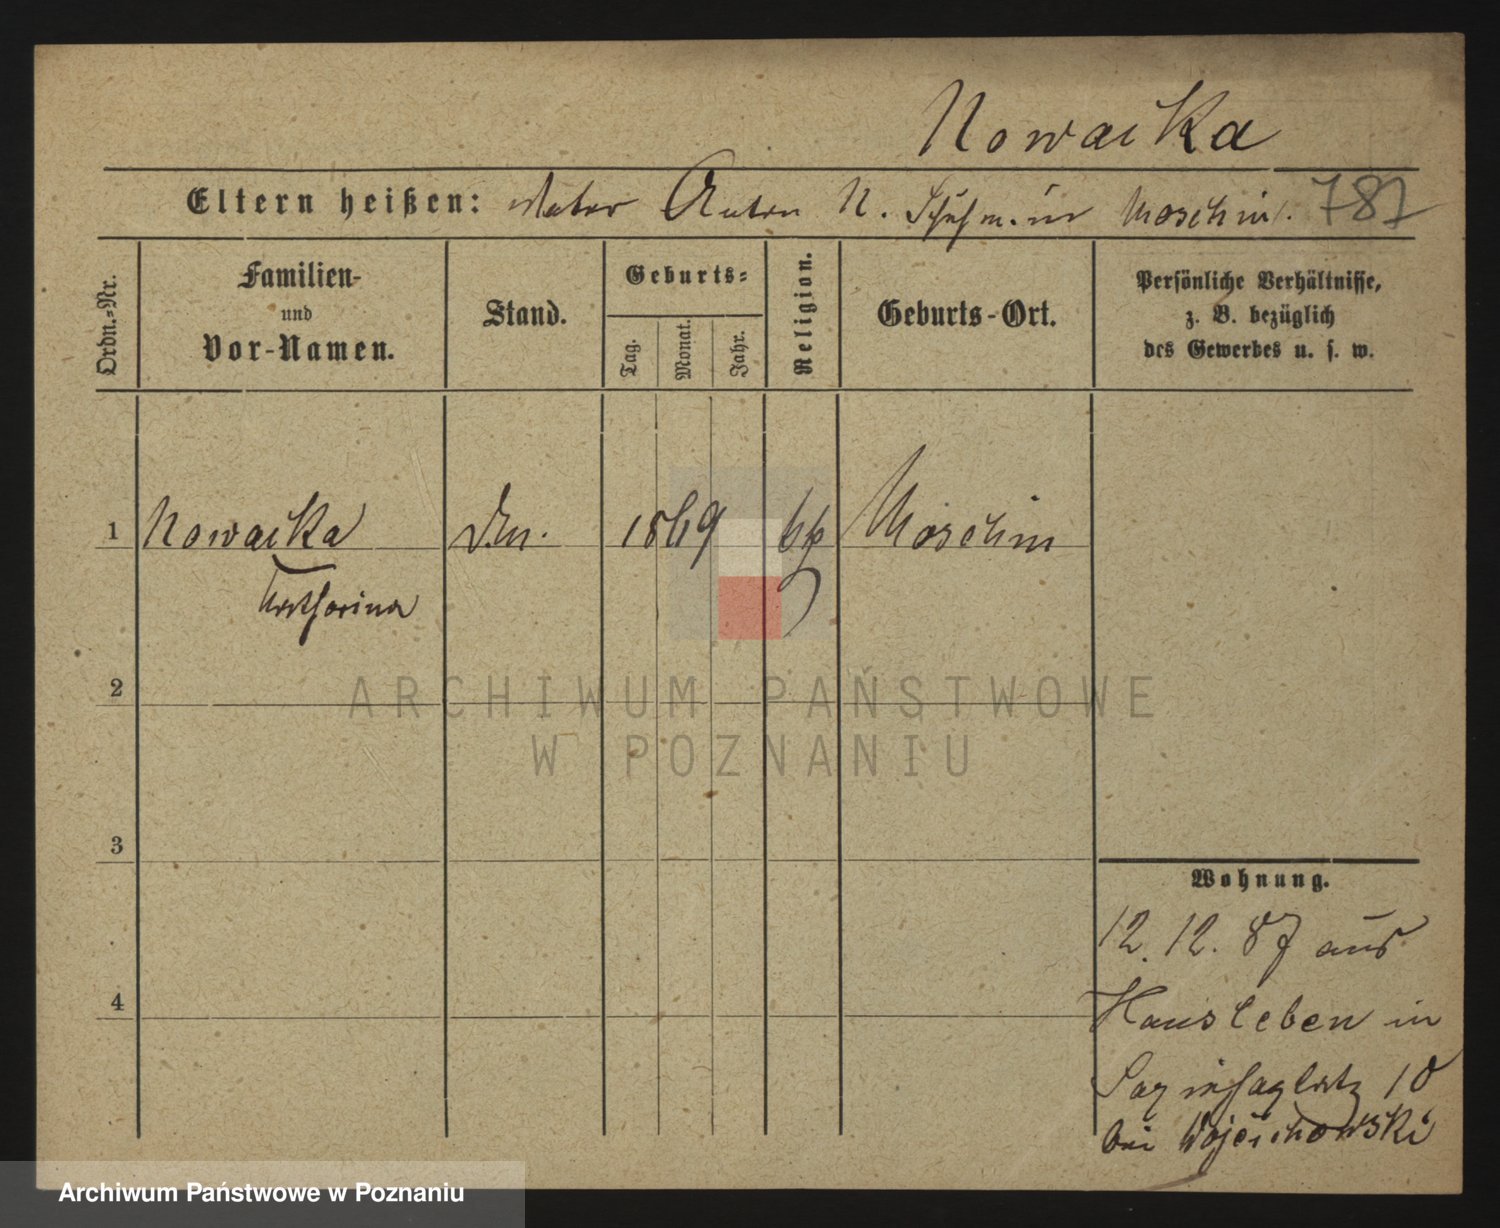 Nowacka
Eltern heißen: Vater Anton N. Schuhm. in Moschin. 787
Ordn.-Nr.
Familien-
und
Vor-Namen.
Stand.
Geburts-
Tag.
Monat.
Jahr.
Religion.
Geburts-Ort.
Persönliche Verhältnisse,
z. B. bezüglich
des Gewerbes u. s. w.
1 Nowacka 1869 Moschin
Katharina
2
ARCHIWUM PAŃSTWOWE
W POZNANIU
3
4
Wohnung.
12. 12. 87 aus
Hansleben in
10
bei Wojciechowski
Archiwum Państwowe w Poznaniu